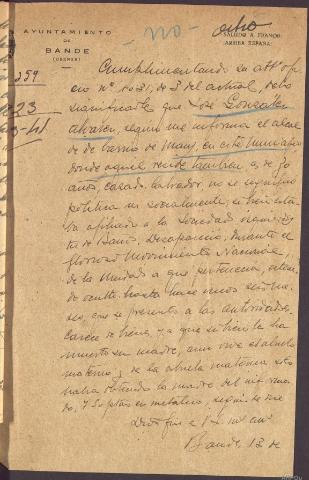 AYUNTAMIENTO
DE
BANDE
(ORENSE)
no
SALUDO A FRANCO
ARRIBA ESPAÑA
259
23
3-41
Cumplimentando su attº ofi
cio nº 1.031, de 3 del actual, debo
significarle que José González
Alvarez, según me informa el alcal
de de barrio de en este Municipio
donde aquel reside tambien, de
años, casado, labrador, no se significó
política ni socialmente, si bien esta
ba afiliado a la Sociedad
ta de Baños. Desapareció, durante el
glorioso Movimiento Nacional,
de la Unidad a que pertenecia, estan
do oculto hasta hace unos
que se presentó a las autoridades.
Carece de bienes, ya que si bien le ha
muerto su madre, aun vive el abuelo
materno; de la abuela materna solo
habia obtenido la madre del informa
do, 750 ptas en metálico, según se me
Dios gue a V. ms. as.
Bande, 12 de